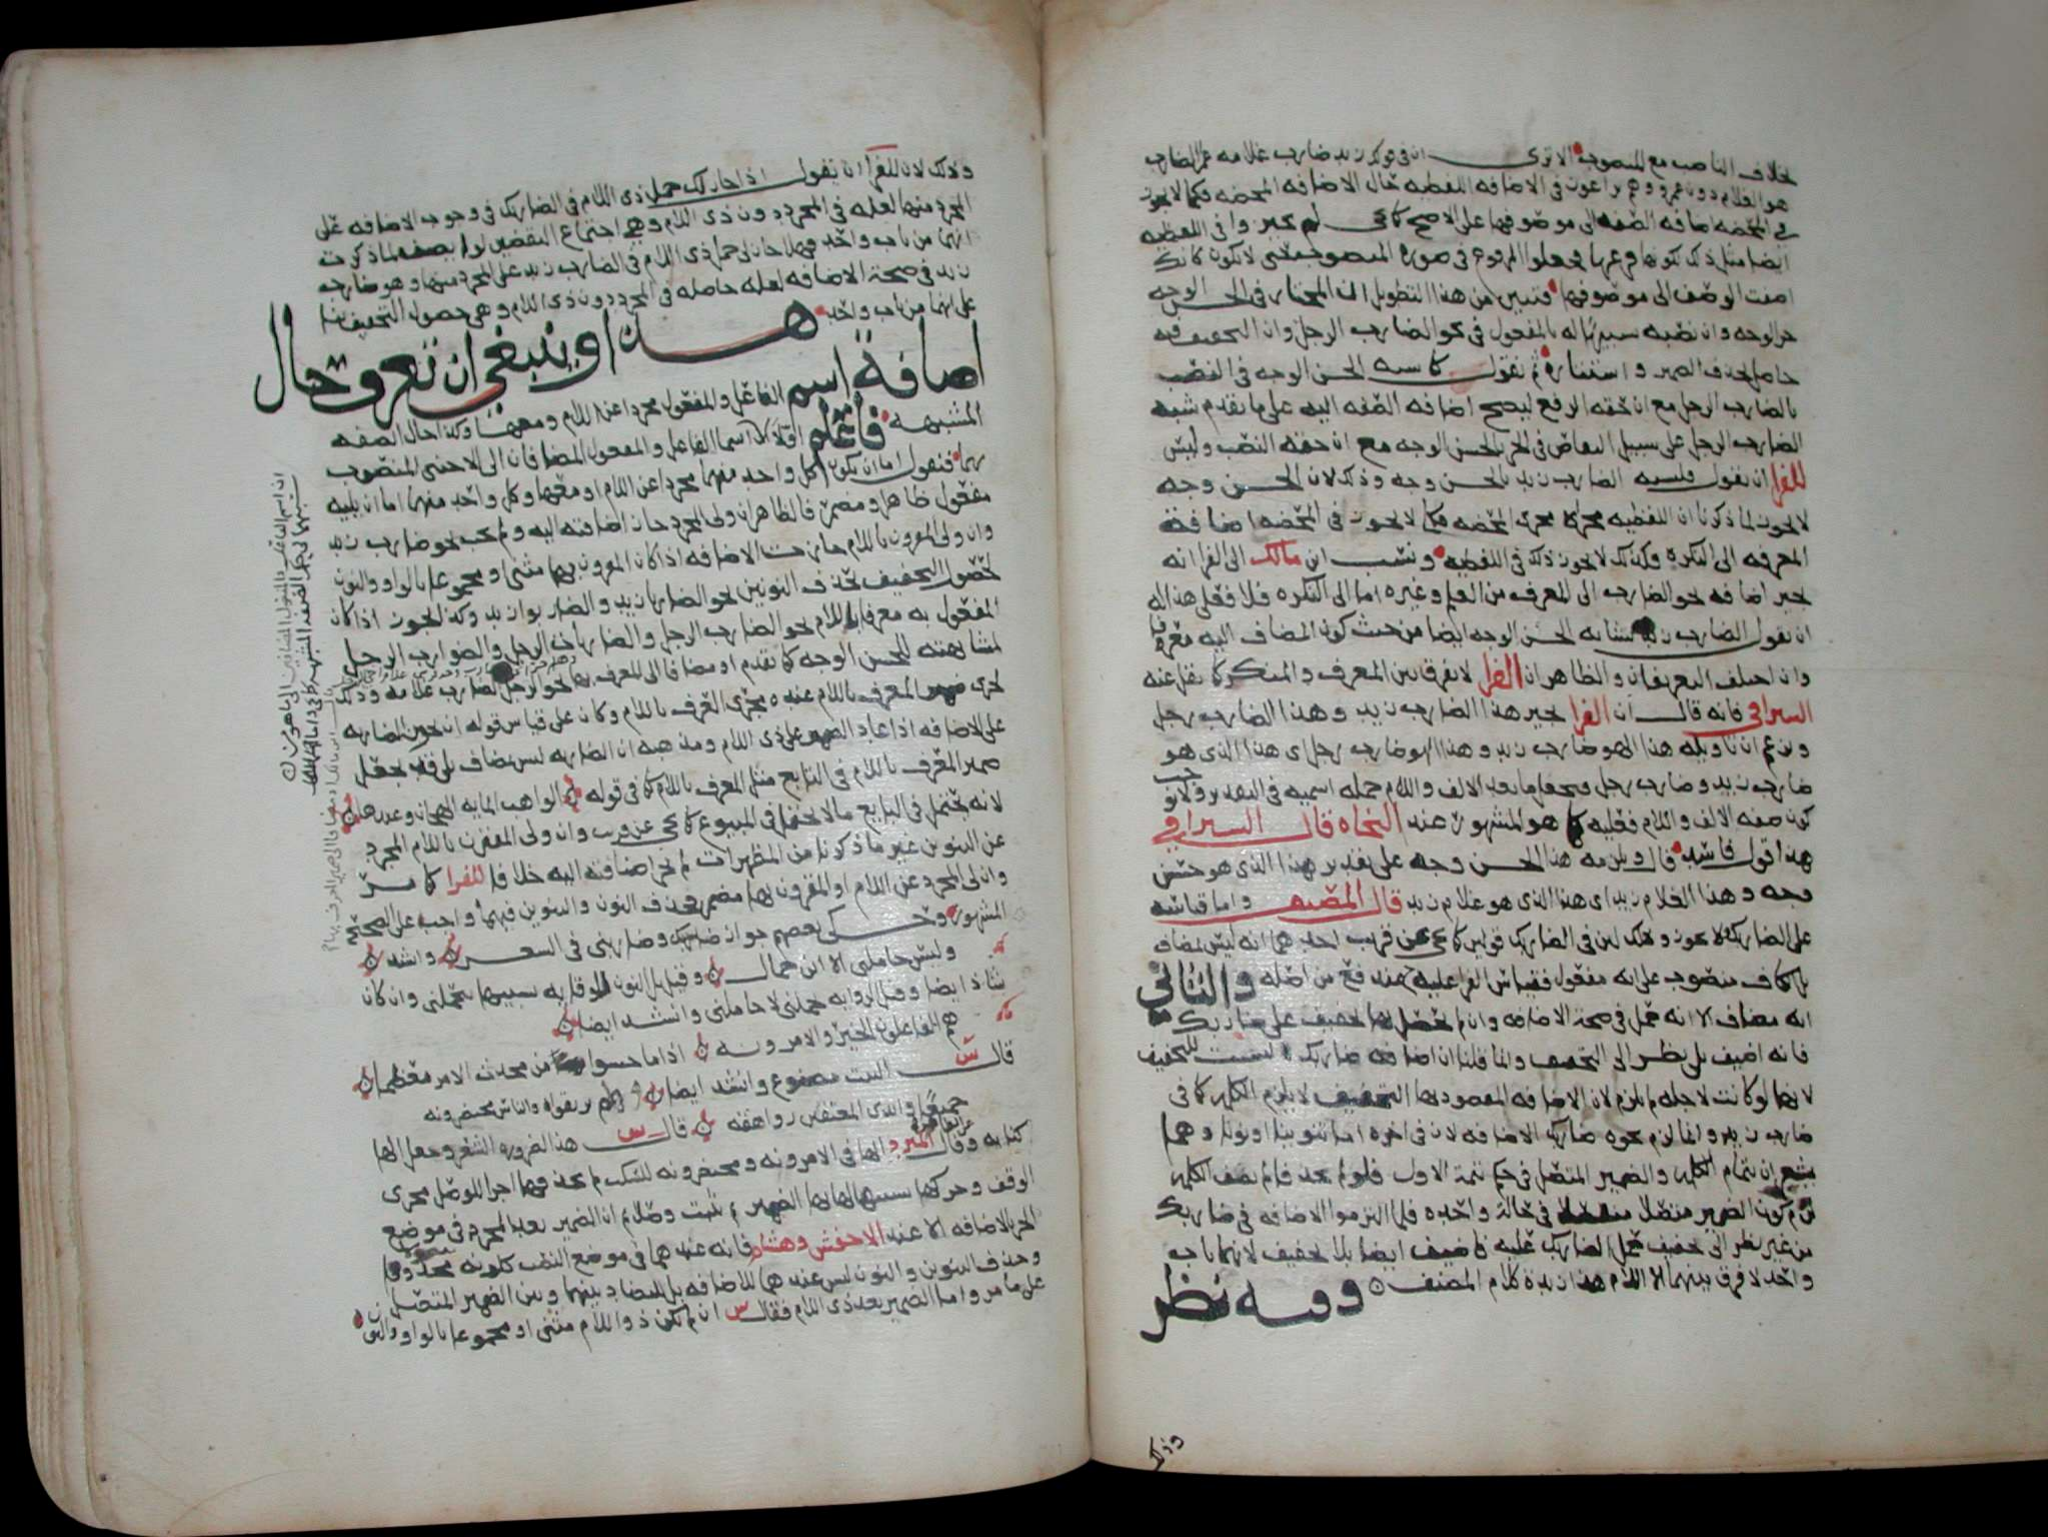 بخلاف الناصب مع المنصوب الا ترى ان في قولك زيد ضارب غلامه عمرا الضارب
هو الغلام دون عمرو وهم يراعون في الاضافه اللفظيه حال الاضافه المحضه فكما لا يجوز
في المحضه اضافه الصفه الى موصوفها على الاصح كما يجي لم يجيزوا في اللفظيه
ايضا مثل ذلك لكونها فرعها فجعلوا المرفوع في صورة المنصوب حتى لا يكون كانك
اضفت الوصف الى موصوفها فتبين من هذا التطويل ان المختار في الحسن الوجه
جر الوجه وان نصبه تشبيها له بالمفعول في نحو الضارب الرجل وان التخفيف فيه
حاصل بحذف الضمير و استتاره ثم نقول كما شبه الحسن الوجه في النصب
بالضارب الرجل مع ان حقه الرفع ليصح اضافه الصفه اليه على ما تقدم شبه
الضارب الرجل على سبيل التقاص في الجر بالحسن الوجه مع ان حقه النصب وليس
للفرا ان يقول فليشبه الضارب زيد بالحسن وجه وذلك لان الحسن وجه
لا يجوز لما ذكرنا ان اللفظيه مجراه مجرى المحضه فكما لا يجوز في المحضه اضافة
المعرفه الى النكرة وكذلك لا يجوز ذلك في اللفظيه ونسب ابن مالك الى الفرا انه
يجيز اضافه نحو الضارب الى المعرف من العلم وغيره اما الى النكره فلا فعلى هذا له
ان يقول الضارب زيد يشابه الحسن الوجه ايضا من حيث كون المضاف اليه معرفا
وان اختلف التعريفان والظاهر ان الفرا لا يفرق بين المعرف والمنكر كما نقل عنه
السيرافي فانه قال ان الفرا يجيز هذا الضارب زيد وهذا الضارب رجل
وزعم ان تاويله هذا الهو ضارب زيد وهذا الهو ضارب رجل اي هذا الذي هو
ضارب زيد وضارب رجل ويجعل ما بعد الالف واللام جمله اسميه في التقدير ولا يوجب
كون صفه الالف واللام فعليه كما هو المشهور عند النحاه قال السيرافي
هذا قول فاسد قال ويلزمه هذا الحسن وجه على تقدير هذا الذي هو حسن
وجه وهذا الغلام زيد اي هذا الذي هو غلام زيد قال المصنف واما قياسه
على الضاربك فلا يجوز وذلك لان في الضاربك قولين كما يجي عن قريب احدهما انه ليس بمضاف
بل الكاف منصوب على انه مفعول فقياس الفرا عليه يمنع من اصله والثاني
انه مضاف الا انه حمل في صحة الاضافه وان لم يحصل بها تخفيف على ضاربك
فانه اضيف بلا نظر الى التخفيف وانما قلنا ان اضافه ضاربك ليست للتخفيف
لانها لو كانت لاجله لم تلزم لان الاضافه المقصود بها التخفيف لا يلزم الكلمه كما في
ضارب زيد وانما لزم نحو ضاربك الاضافه لان في اخره اما تنوينا او نونا وهما
يشعران بتمام الكلمه والضمير المتصل في حكم تتمة الاول فلو لم يحذفا لم تضف الكلمه
لزم كون الضمير متصلا منفصلا في حالة واحده فلما التزموا الاضافه في ضاربك
من غير نظر الى تخفيف حمل الضاربك عليه فاضيف ايضا بلا تخفيف لانهما باب
واحد لا فرق بينهما الا اللام هذا زبدة كلام المصنف وفيه نظر
وذلك
وذلك لان للفرا ان يقول اذا جاز لك حمل ذي اللام في الضاربك في وجوب الاضافه على
المجرد منها لعله في المجرد دون ذي اللام وهي اجتماع النقيضين لو لم يضف لما ذكرت
انهما من باب واحد فهلا جاز لي حمل ذي اللام في الضارب زيد على المجرد منها وهو ضارب
زيد في صحة الاضافه لعله حاصله في المجرد دون ذي اللام وهي حصول التخفيف بنا
على انهما من باب واحد هذا وينبغي ان تعرف حال
اضافة اسم الفاعل والمفعول مجردا عن اللام ومعها وكذا حال الصفه
المشبهه فاعلم اولا ان اسما الفاعل والمفعول المضافان الى الاجنبي المنصوب
بهما فنقول اما ان يكون كل واحد منهما مجردا عن اللام او معها وكل واحد منهما اما ان يليه
مفعول ظاهر او مضمر فالظاهر ان ولي المجرد جاز اضافته اليه ولم يجب نحو ضارب زيد
وان ولي المقرون باللام جازت الاضافه اذا كان المقرون بها مثنى او مجموعا بالواو والنون
لحصول التخفيف بحذف النونين نحو الضاربا زيد والضاربو زيد وكذا يجوز اذا كان
المفعول به معرفا باللام نحو الضارب الرجل والضاربات الرجل والضوارب الرجل
لمشابهته للحسن الوجه كما تقدم او مضافا الى المعرف بها نحو الرجل الضارب غلامه وذلك
لجري ضمير المعرف باللام عنده مجرى المعرف باللام وكان على قياس قوله ان يجوز الضاربه
على الاضافه اذا عاد الضمير على ذي اللام ومذهبه ان الضاربه ليس بمضاف بل قد يجعل
ضمير المعرف باللام في التابع مثل المعرف باللام كما في قوله الواهب المايه الهجان وعبدها
لانه يحتمل في التابع ما لا يحتمل في المتبوع كما يجي عن قريب وان ولي المقرن باللام المجرد
عن النون غير ما ذكرنا من المظهرات لم يجز اضافته اليه خلافا للفرا كما مر
وان ولي المجرد عن اللام او المقرون بها مضمر فحذف النون والتنوين فيهما واجب على الصحيح
المشهور وحكى بعضهم جواز ضاربك وضاربني في السعر وانشد
وليس حاملني الا ابن حمال وقيل بل النون للوقايه تشبيها بتحملني وان كان
شاذ ايضا وقيل الروايه يحملني لا حاملني وانشد ايضا
هم الفاعلون الخير والامرونه اذا ما خشوا من محدث الامر معظما
قال س البيت مصنوع وانشد ايضا ولم يرتفق والناس محتضرونه
جميعا وايدي المعتفين رواهقه قال س هذا لضرورة الشعر وجعل الها
كنايه وقال المبرد الها في الامرونه ومحتضرونه للسكت لم يحذفها اجرا للوصل مجرى
الوقف وحركها تشبيها لها بها الضمير لم تثبت وصلا ثم ان الضمير بعد المجرد في موضع
الجر بالاضافه الا عند الاخفش وهشام فانه عندهما في موضع النصب لكونه مفعولا
وحذف التنوين والنون ليس عندهما للاضافه بل للتضاد بينهما وبين الضمير المتصل
على ما مر واما الضمير بعد ذي اللام فقال س ان لم يكن ذو اللام مثنى او مجموعا بالواو والنون